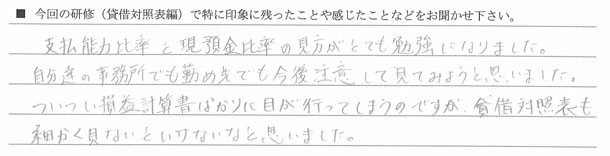 ■ 今回の研修（貸借対照表編）で特に印象に残ったことや感じたことなどをお聞かせ下さい。
支払能力比率と現預金比率の見方がとても勉強になりました。
自分達の事務所でも勤め先でも今後注意して見てみようと思いました。
ついつい損益計算書ばかりに目が行ってしまうのですが、貸借対照表も
細かく見ないといけないなと思いました。